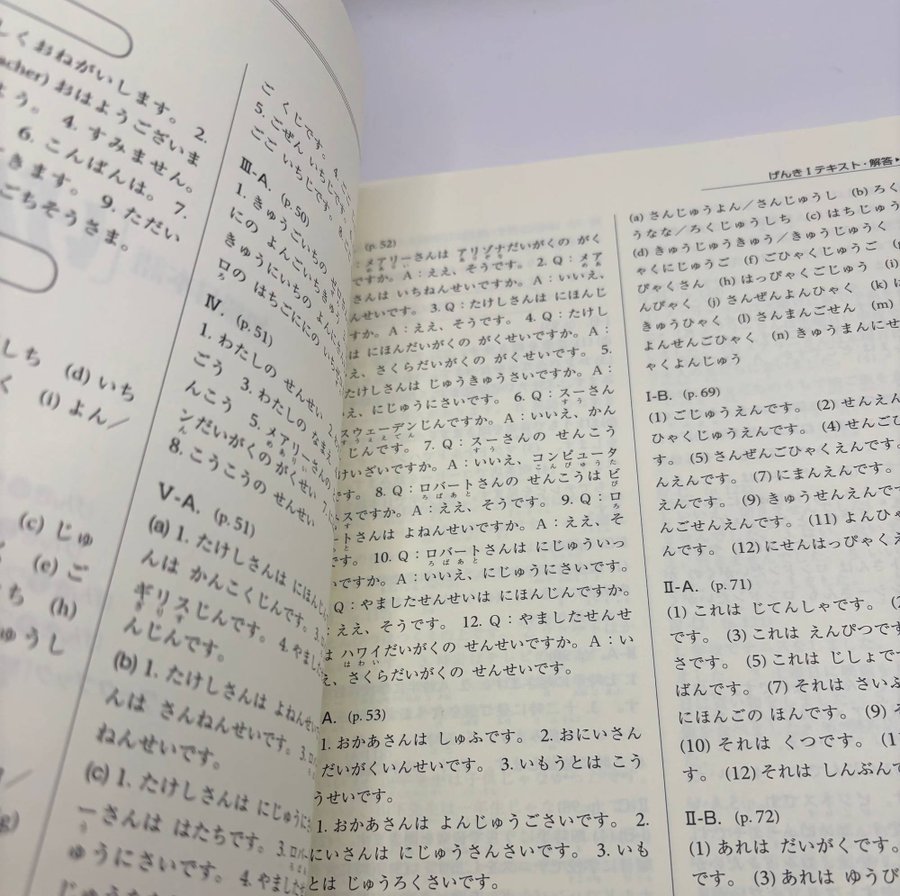 しくおねがいします。 2.
acher) おはようございま
よう。 4. すみません。
6. こんばんは。 7.
きます。 9. ただい
ごちそうさま。
しち (d) いち
く (i) よん/
(c) じゅ
(e) ご
ち (h)
ゅうし
ご くじです。 4.
5. ごぜん いちじです。
ごご いちじです。
Ⅲ-A. (p.50)
1. きゅうごいちの
にの よんごいちきゅ
きゅうにいちの よんに
ロの はちごににの いち
Ⅳ. (p.51)
1. わたしの せんせい
ごう 3. わたしの なまえ
んこう 5. メアリーさんの
ンだいがくのがくせい 7.
8. こうこうの せんせい
Ⅴ-A. (p.51)
(a) 1. たけしさんは にほんじん
んは かんこくじんです。 3.
ギリスじんです。 4. やました
んじんです。
(b) 1. たけしさんは よねんせい
んは さんねんせいです。 3.
ねんせいです。
(c) 1. たけしさんは にじゅうに
ーさんは はたちです。 3.
ゅうにさいです。 4. やました
げんき Ⅰ テキスト・解答
(p. 52)
: メアリーさんは アリゾナだいがくの がく
ですか。A:ええ、そうです。 2. Q:メア
さんは いちねんせいですか。A:いいえ、
んせいです。 3. Q:たけしさんは にほんじ
すか。A:ええ、そうです。 4. Q:たけし
は にほんだいがくの がくせいですか。A:
え、さくらだいがくの がくせいです。 5.
たけしさんは じゅうきゅうさいですか。A:
いえ、にじゅうにさいです。 6. Q:スーさん
スウェーデンじんですか。A:いいえ、かん
じんです。 7. Q:スーさんの せんこう
けいざいですか。A:いいえ、コンピュータ
です。 8. Q:ロバートさんの せんこうは ビ
ネスですか。A:ええ、そうです。 9. Q:ロ
ートさんは よねんせいですか。A:ええ、そ
です。 10. Q:ロバートさんは にじゅういっ
いですか。A:いいえ、にじゅうにさいです。
Q:やましたせんせいは にほんじんですか。
:ええ、そうです。 12. Q:やましたせんせ
は ハワイだいがくの せんせいですか。A:い
え、さくらだいがくの せんせいです。
A. (p. 53)
1. おかあさんは しゅふです。 2. おにいさん
だいがくいんせいです。 3. いもうとは こう
うせいです。
1. おかあさんは よんじゅうごさいです。 2.
にいさんは にじゅうさんさいです。 3. いも
とは じゅうろくさいです。
(a) さんじゅうよん/さんじゅうし (b) ろく
うなな/ろくじゅうしち (c) はちじゅう
(d) きゅうじゅうきゅう/きゅうじゅうく
ゃくにじゅうご (f) ごひゃくじゅうご
ぴゃくさん (h) はっぴゃくごじゅう (i)
んびゃく (j) さんぜんよんひゃく (k) は
きゅうひゃく (l) さんまんごせん (m)
よんせんごひゃく (n) きゅうまんにせ
ゃくよんじゅう
I-B. (p. 69)
(1) ごじゅうえんです。 (2) せんえん
ひゃくじゅうえんです。 (4) せんごひ
す。 (5) さんぜんごひゃくえんです。
んえんです。 (7) にまんえんです。
えんです。 (9) きゅうせんえんです
んごせんえんです。 (11) よんひゃ
んです。 (12) にせんはっぴゃくえ
Ⅱ-A. (p. 71)
(1) これは じてんしゃです。
です。 (3) これは えんぴつです
さです。 (5) これは じしょです
ばんです。 (7) それは さいふ
にほんごの ほんです。 (9) そ
(10) それは くつです。 (11
す。 (12) それは しんぶんで
Ⅱ-B. (p. 72)
(1) あれは だいがくです。
です。 (3) あれは ゆうび